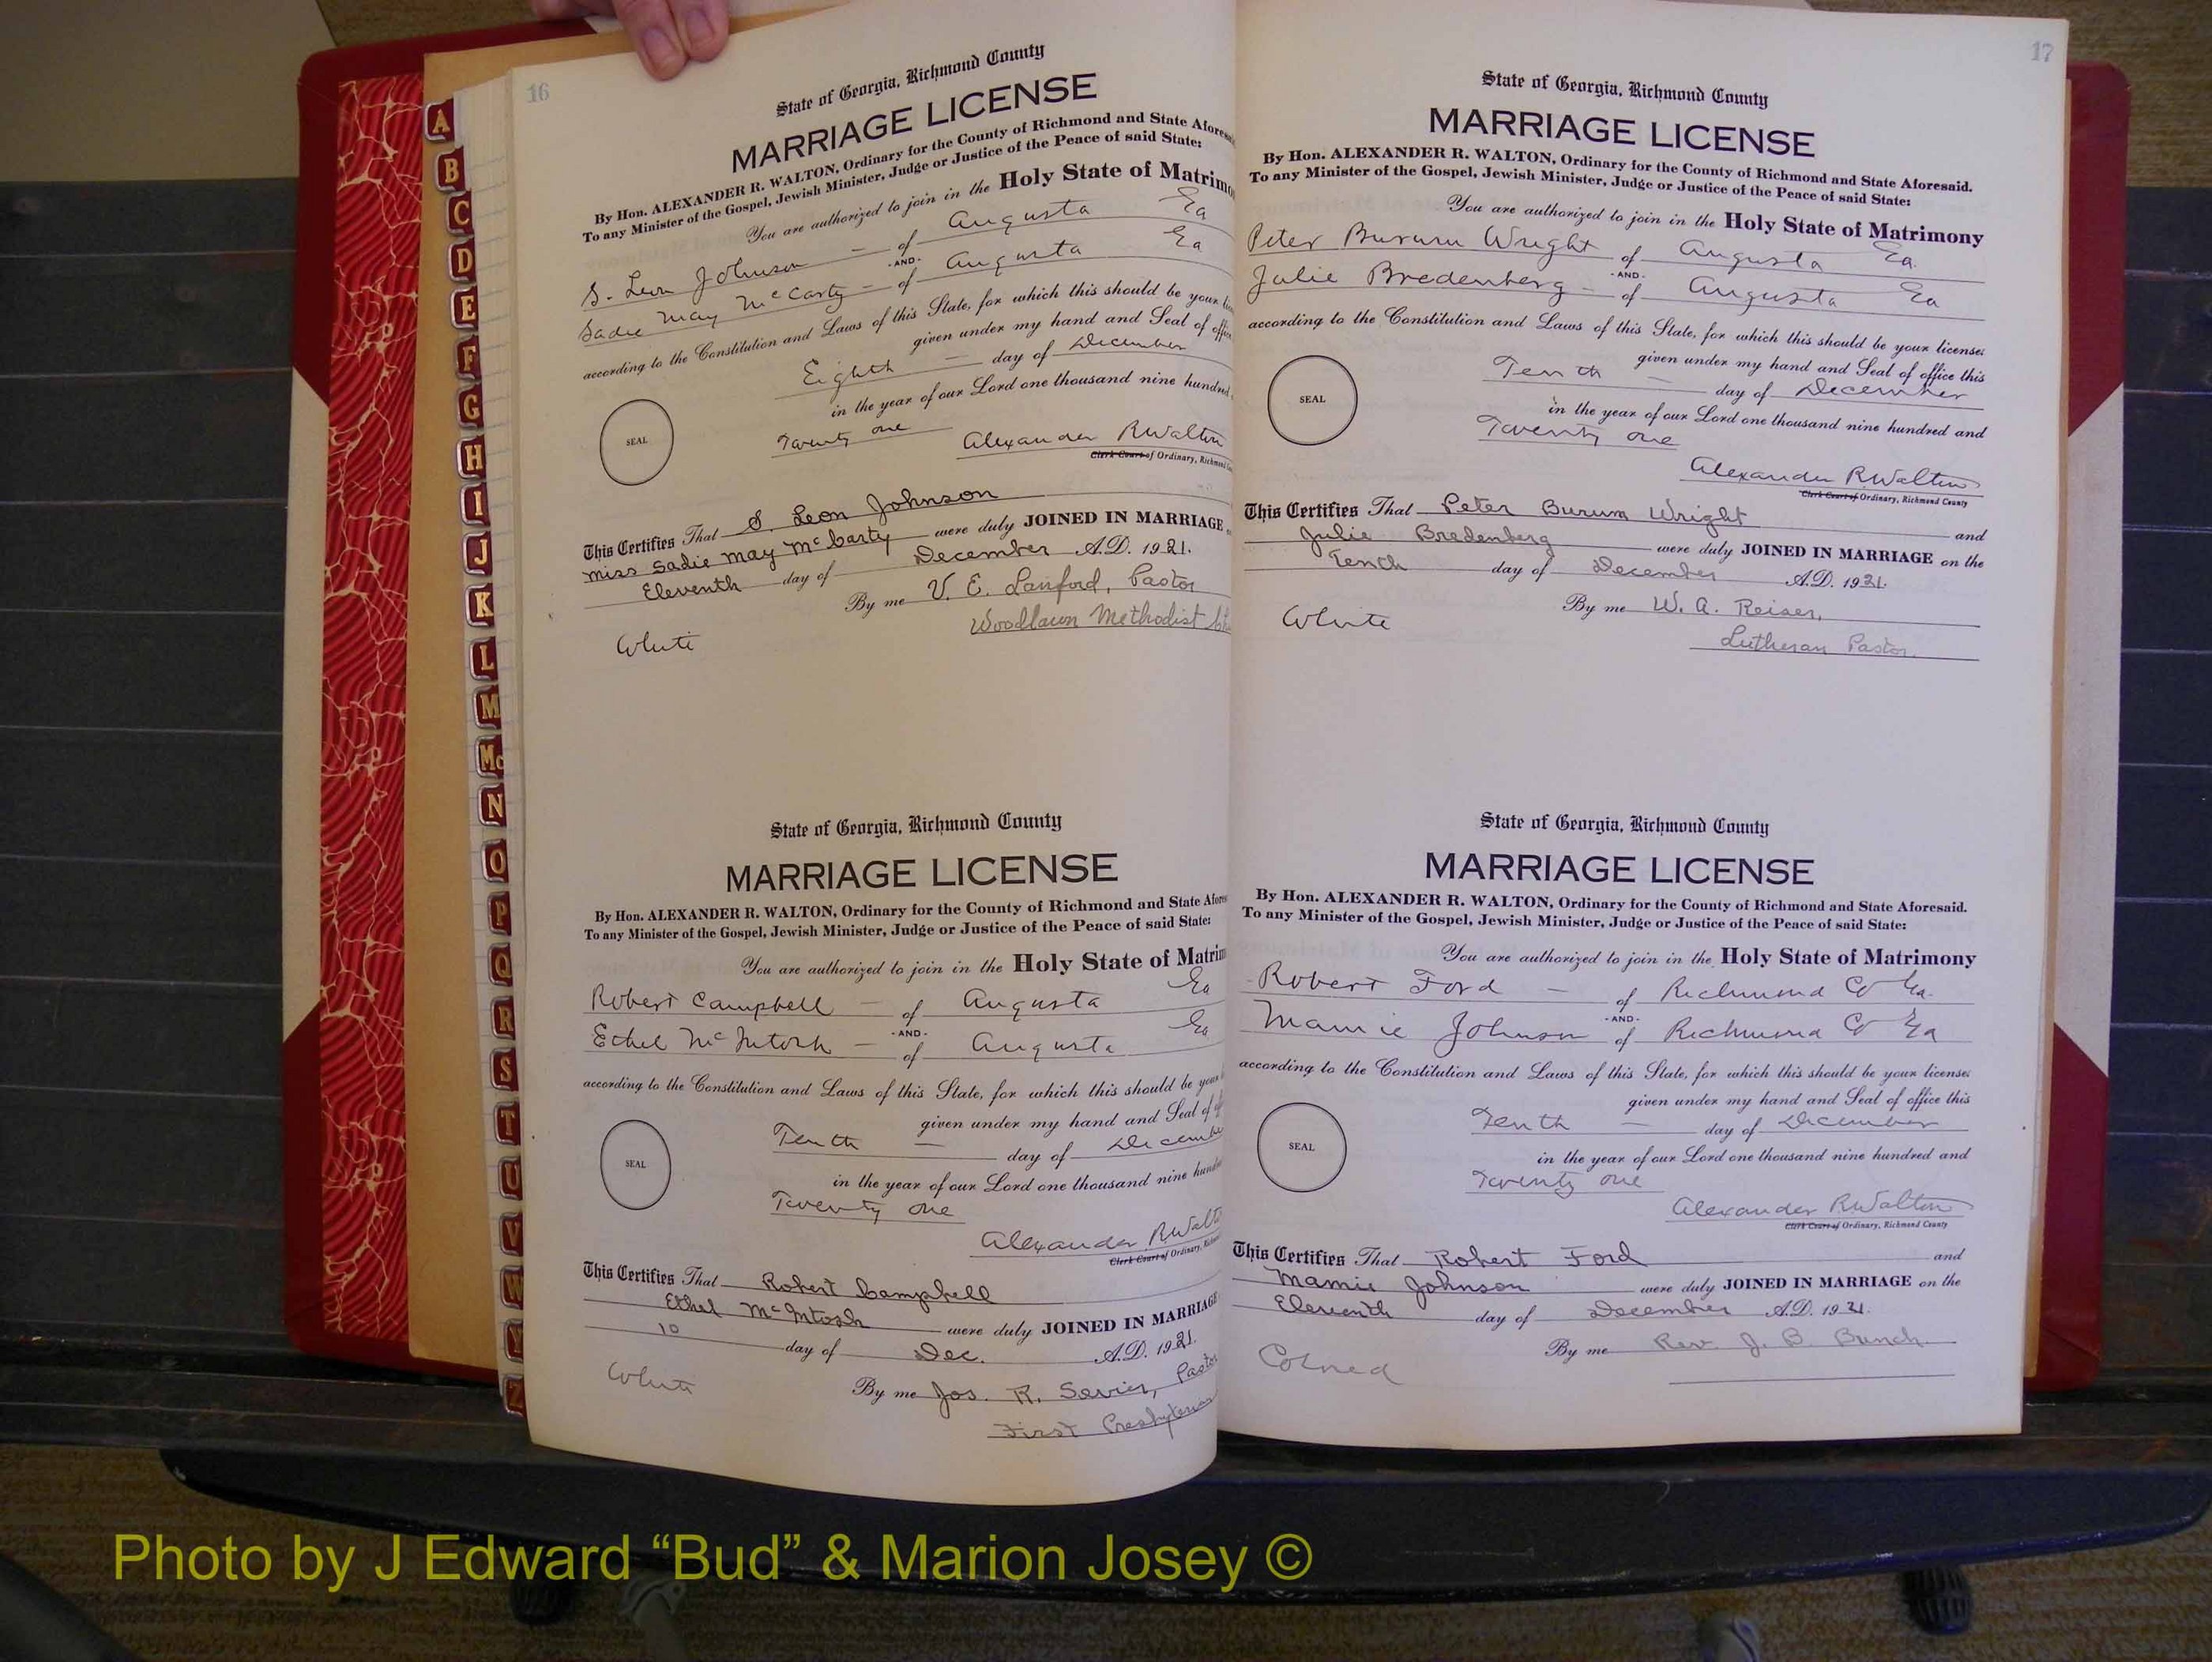 16
State of Georgia, Richmond County
MARRIAGE LICENSE
By Hon. ALEXANDER R. WALTON, Ordinary for the County of Richmond and State Afores
To any Minister of the Gospel, Jewish Minister, Judge or Justice of the Peace of said State:
You are authorized to join in the Holy State of Matrimo
S. Leon Johnson — of Augusta Ga
- AND -
Sadie May McCarty — of Augusta Ga
according to the Constitution and Laws of this State, for which this should be your li
given under my hand and Seal of offi
Eighth — day of December
in the year of our Lord one thousand nine hundred
SEAL
Twenty one
Alexander R Walton
Clerk Court of Ordinary, Richmond
This Certifies That S. Leon Johnson
Miss Sadie May McCarty were duly JOINED IN MARRIAGE
Eleventh day of December A.D. 1921.
By me V. E. Lanford, Pastor
Woodlawn Methodist Ch
White
State of Georgia, Richmond County
MARRIAGE LICENSE
By Hon. ALEXANDER R. WALTON, Ordinary for the County of Richmond and State Afores
To any Minister of the Gospel, Jewish Minister, Judge or Justice of the Peace of said State:
You are authorized to join in the Holy State of Matrim
Robert Campbell — of Augusta Ga
- AND -
Ethel McIntosh — of Augusta Ga
according to the Constitution and Laws of this State, for which this should be your
given under my hand and Seal of of
Tenth — day of Decembe
SEAL
in the year of our Lord one thousand nine hundr
Twenty one
Alexander R Walt
Clerk Court of Ordinary, Rich
This Certifies That Robert Campbell
Ethel McIntosh were duly JOINED IN MARRIAGE
10 day of Dec. A.D. 1921.
White
By me Jos. R. Sevier, Pastor
First Presbyterian
17
State of Georgia, Richmond County
MARRIAGE LICENSE
By Hon. ALEXANDER R. WALTON, Ordinary for the County of Richmond and State Aforesaid.
To any Minister of the Gospel, Jewish Minister, Judge or Justice of the Peace of said State:
You are authorized to join in the Holy State of Matrimony
Peter Burum Wright of Augusta Ga.
- AND -
Julie Bredenberg — of Augusta Ga
according to the Constitution and Laws of this State, for which this should be your license:
given under my hand and Seal of office this
Tenth — day of December
SEAL
in the year of our Lord one thousand nine hundred and
Twenty one
Alexander R Walton
Clerk Court of Ordinary, Richmond County
This Certifies That Peter Burum Wright and
Julie Bredenberg were duly JOINED IN MARRIAGE on the
Tenth day of December A.D. 1921.
By me W. A. Reiser,
White
Lutheran Pastor.
State of Georgia, Richmond County
MARRIAGE LICENSE
By Hon. ALEXANDER R. WALTON, Ordinary for the County of Richmond and State Aforesaid.
To any Minister of the Gospel, Jewish Minister, Judge or Justice of the Peace of said State:
You are authorized to join in the Holy State of Matrimony
Robert Ford — of Richmond Co Ga.
- AND -
Mamie Johnson of Richmond Co Ga
according to the Constitution and Laws of this State, for which this should be your license:
given under my hand and Seal of office this
Tenth — day of December
SEAL
in the year of our Lord one thousand nine hundred and
Twenty one
Alexander R Walton
Clerk Court of Ordinary, Richmond County
This Certifies That Robert Ford and
Mamie Johnson were duly JOINED IN MARRIAGE on the
Eleventh day of December A.D. 1921.
By me Rev. J. B. Bunch
Colored
A
B
C
D
E
F
G
H
I
J
K
L
M
Mc
N
O
P
Q
R
S
T
U
V
W
Y
Z
Photo by J Edward “Bud” & Marion Josey ©